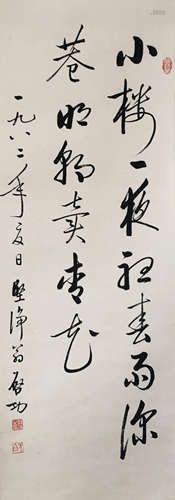 小楼一夜聽春雨深
巷明朝賣杏花
一九八二年夏日 堅净翁啓功